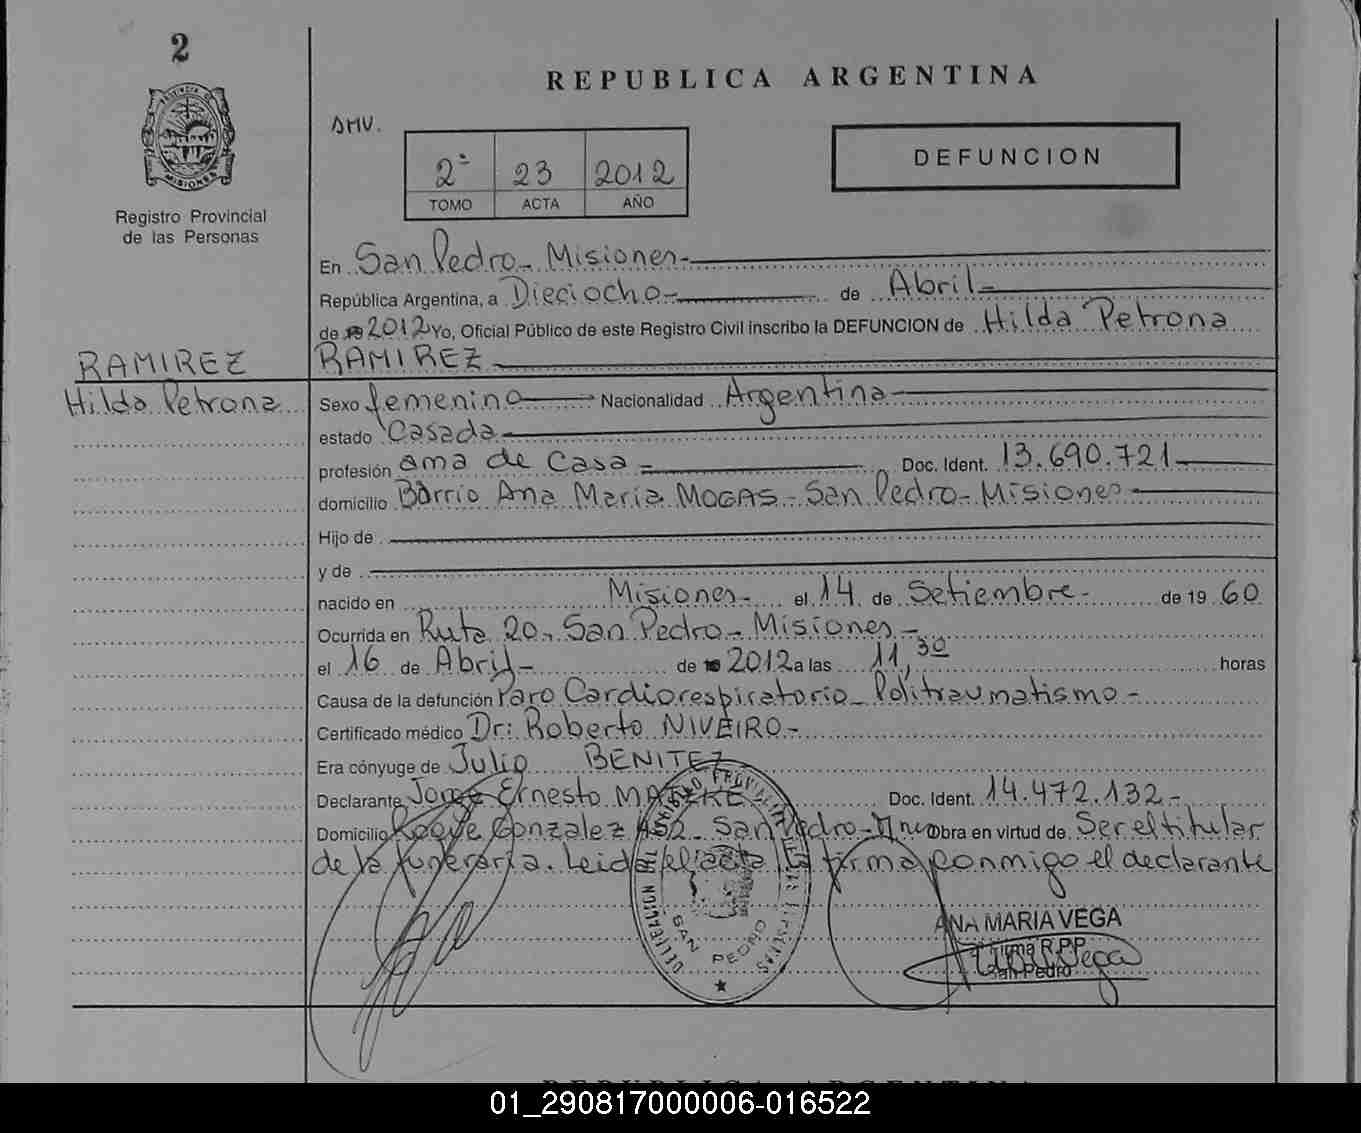 2
REPUBLICA ARGENTINA
AMV.
DEFUNCION
2º 23 2012
TOMO ACTA AÑO
PROVINCIA DE
MISIONES
Registro Provincial
de las Personas
En San Pedro - Misiones -
República Argentina, a Dieciocho - de Abril -
de 2012 Yo, Oficial Público de este Registro Civil inscribo la DEFUNCION de Hilda Petrona
RAMIREZ
RAMIREZ -
Hilda Petrona
Sexo femenino Nacionalidad Argentina -
estado Casada -
profesión ama de Casa - Doc. Ident. 13.690.721
domicilio Barrio Ana Maria MOGAS - San Pedro - Misiones -
Hijo de
y de
nacido en Misiones - el 14 de Setiembre - de 19 60
Ocurrida en Ruta 20 -, San Pedro - Misiones -
el 16 de Abril - de 2012 a las 11,30 horas
Causa de la defunción Paro Cardiorespiratorio - Politraumatismo -
Certificado médico Dr: Roberto NIVEIRO -
Era cónyuge de Julio BENITEZ
Declarante Jorge Ernesto Doc. Ident. 14.472.132 -
Domicilio Roque Gonzalez 452 - San Pedro - Obra en virtud de Ser el titular
de la funeraria. Leida el acta la firma conmigo el declarante
DELEGACION DEL REGISTRO PROVINCIAL DE LAS PERSONAS
SAN PEDRO
ANA MARIA VEGA
Firma R.P.P.
San Pedro
REPUBLICA ARGENTINA
01_290817000006-016522